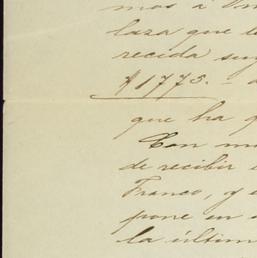 mos á Vm
laza que l
recida su
$1775.- d
que ha
Con mu
de recibir
Franco, y
pone en
la últim